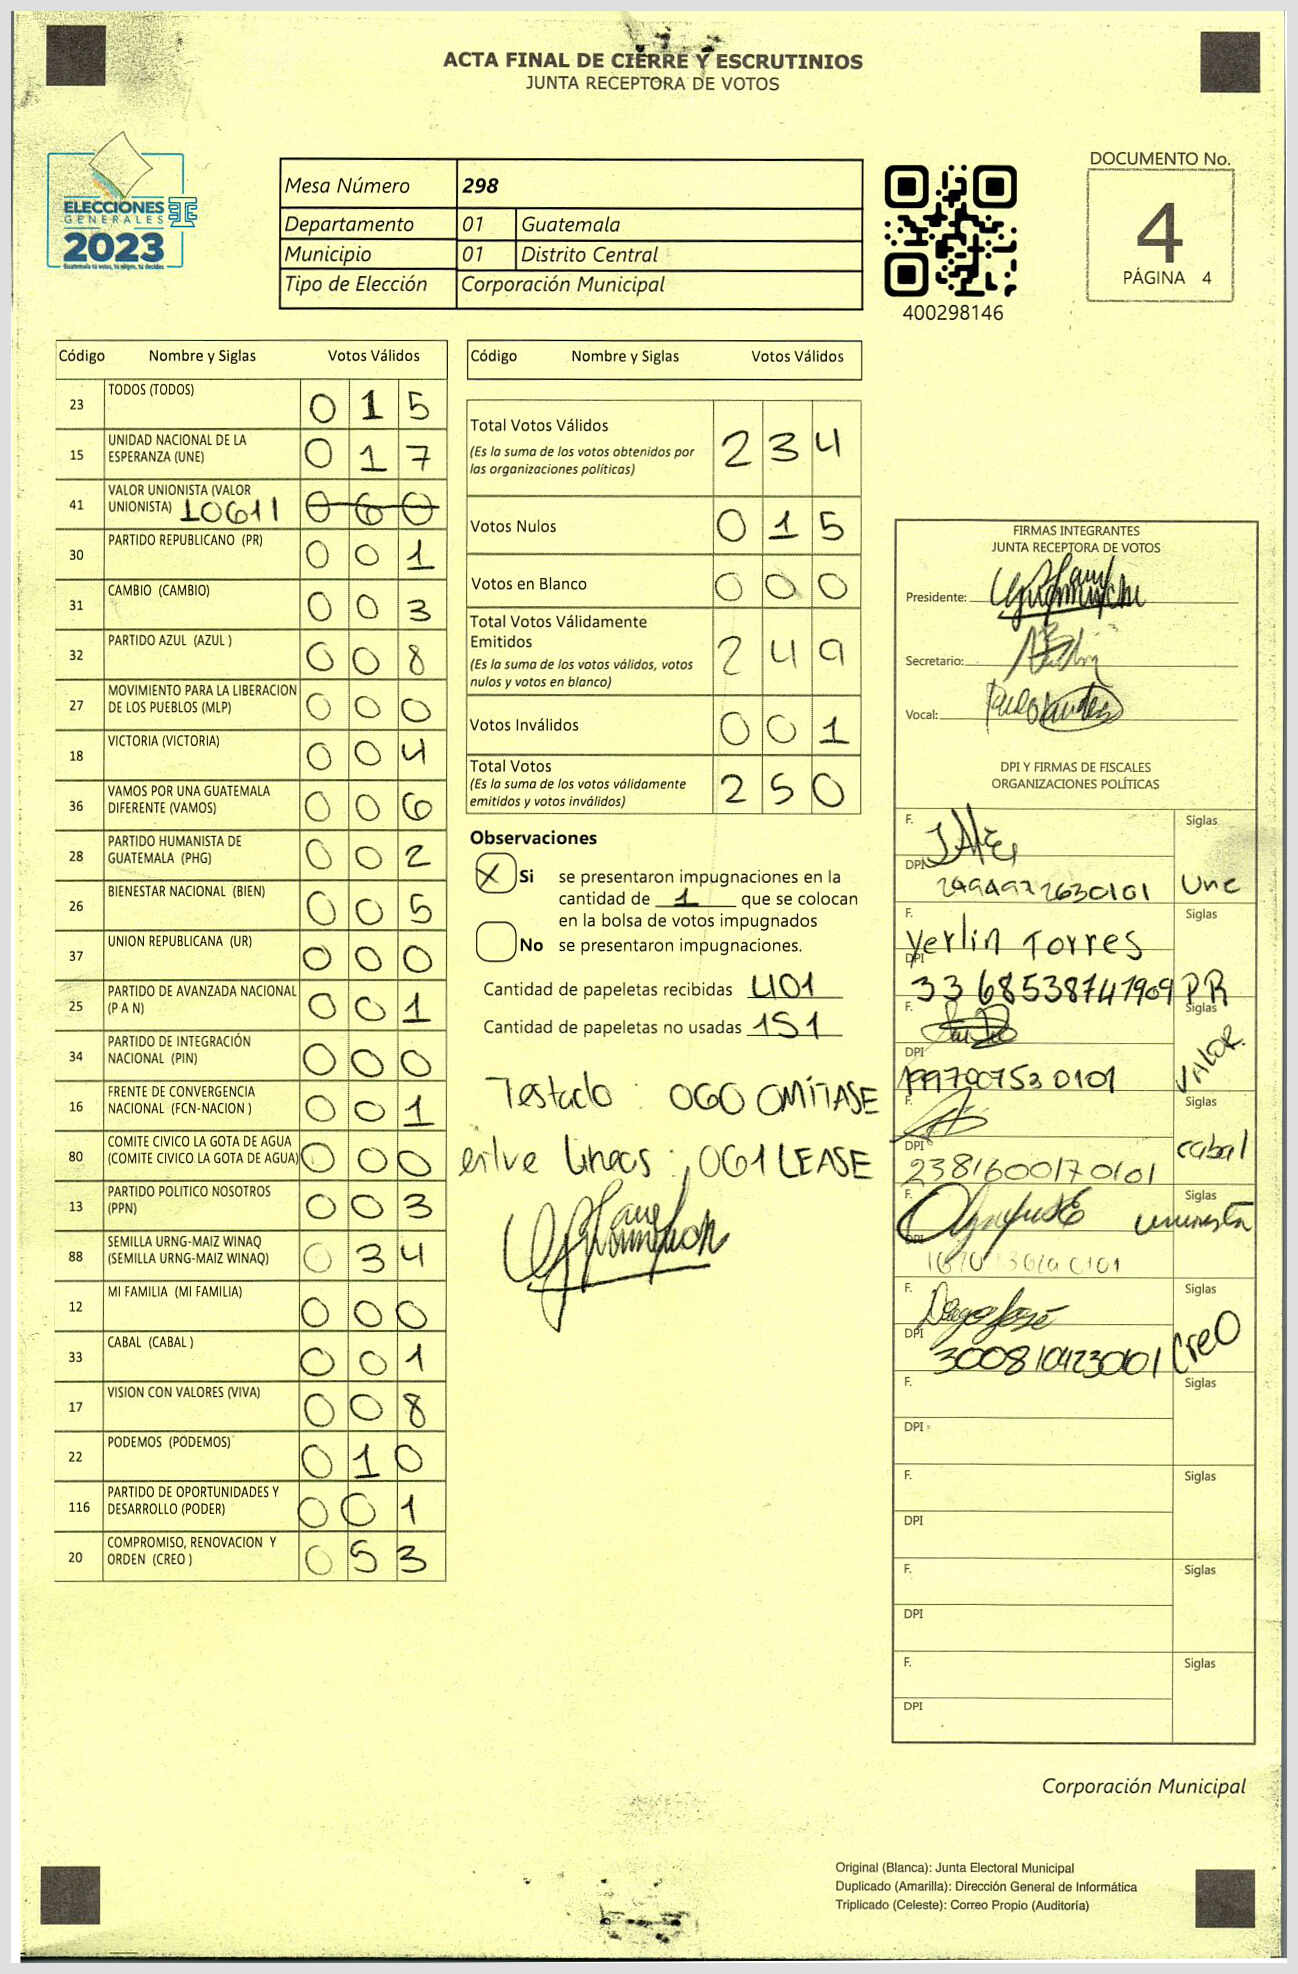 ACTA FINAL DE CIERRE Y ESCRUTINIOS
JUNTA RECEPTORA DE VOTOS
ELECCIONES
GENERALES
2023
Guatemala tú votas, tú eliges, tú decides
Mesa Número 298
Departamento 01 Guatemala
Municipio 01 Distrito Central
Tipo de Elección Corporación Municipal
400298146
DOCUMENTO No.
4
PÁGINA 4
Código Nombre y Siglas Votos Válidos
23 TODOS (TODOS) 0 1 5
15 UNIDAD NACIONAL DE LA ESPERANZA (UNE) 0 1 7
41 VALOR UNIONISTA (VALOR UNIONISTA) 10611 0 6 0
30 PARTIDO REPUBLICANO (PR) 0 0 1
31 CAMBIO (CAMBIO) 0 0 3
32 PARTIDO AZUL (AZUL ) 0 0 8
27 MOVIMIENTO PARA LA LIBERACION DE LOS PUEBLOS (MLP) 0 0 0
18 VICTORIA (VICTORIA) 0 0 4
36 VAMOS POR UNA GUATEMALA DIFERENTE (VAMOS) 0 0 6
28 PARTIDO HUMANISTA DE GUATEMALA (PHG) 0 0 2
26 BIENESTAR NACIONAL (BIEN) 0 0 5
37 UNION REPUBLICANA (UR) 0 0 0
25 PARTIDO DE AVANZADA NACIONAL (P A N) 0 0 1
34 PARTIDO DE INTEGRACIÓN NACIONAL (PIN) 0 0 0
16 FRENTE DE CONVERGENCIA NACIONAL (FCN-NACION ) 0 0 1
80 COMITE CIVICO LA GOTA DE AGUA (COMITE CIVICO LA GOTA DE AGUA) 0 0 0
13 PARTIDO POLITICO NOSOTROS (PPN) 0 0 3
88 SEMILLA URNG-MAIZ WINAQ (SEMILLA URNG-MAIZ WINAQ) 0 3 4
12 MI FAMILIA (MI FAMILIA) 0 0 0
33 CABAL (CABAL ) 0 0 1
17 VISION CON VALORES (VIVA) 0 0 8
22 PODEMOS (PODEMOS) 0 1 0
116 PARTIDO DE OPORTUNIDADES Y DESARROLLO (PODER) 0 0 1
20 COMPROMISO, RENOVACION Y ORDEN (CREO ) 0 5 3
Código Nombre y Siglas Votos Válidos
Total Votos Válidos 2 3 4
(Es la suma de los votos obtenidos por
las organizaciones políticas)
Votos Nulos 0 1 5
Votos en Blanco 0 0 0
Total Votos Válidamente
Emitidos 2 4 9
(Es la suma de los votos válidos, votos
nulos y votos en blanco)
Votos Inválidos 0 0 1
Total Votos 2 5 0
(Es la suma de los votos válidamente
emitidos y votos inválidos)
Observaciones
X Si se presentaron impugnaciones en la
cantidad de 1 que se colocan
en la bolsa de votos impugnados
No se presentaron impugnaciones.
Cantidad de papeletas recibidas 401
Cantidad de papeletas no usadas 151
Testado : 060 OMÍTASE
entre lineas : 061 LEASE
FIRMAS INTEGRANTES
JUNTA RECEPTORA DE VOTOS
Presidente:
Secretario:
Vocal:
DPI Y FIRMAS DE FISCALES
ORGANIZACIONES POLÍTICAS
F. Siglas
DPI Une
F. Yerlin Torres Siglas
DPI 3368538741909 PR
F. Siglas
DPI 199700753 0101 VALOR.
F. Siglas
DPI 2381600170101 cabal
F. Siglas
DPI unionista
F. Diego José Siglas
DPI 3008104230101 CreO
F. Siglas
DPI
F. Siglas
DPI
F. Siglas
DPI
F. Siglas
DPI
Corporación Municipal
Original (Blanca): Junta Electoral Municipal
Duplicado (Amarilla): Dirección General de Informática
Triplicado (Celeste): Correo Propio (Auditoría)